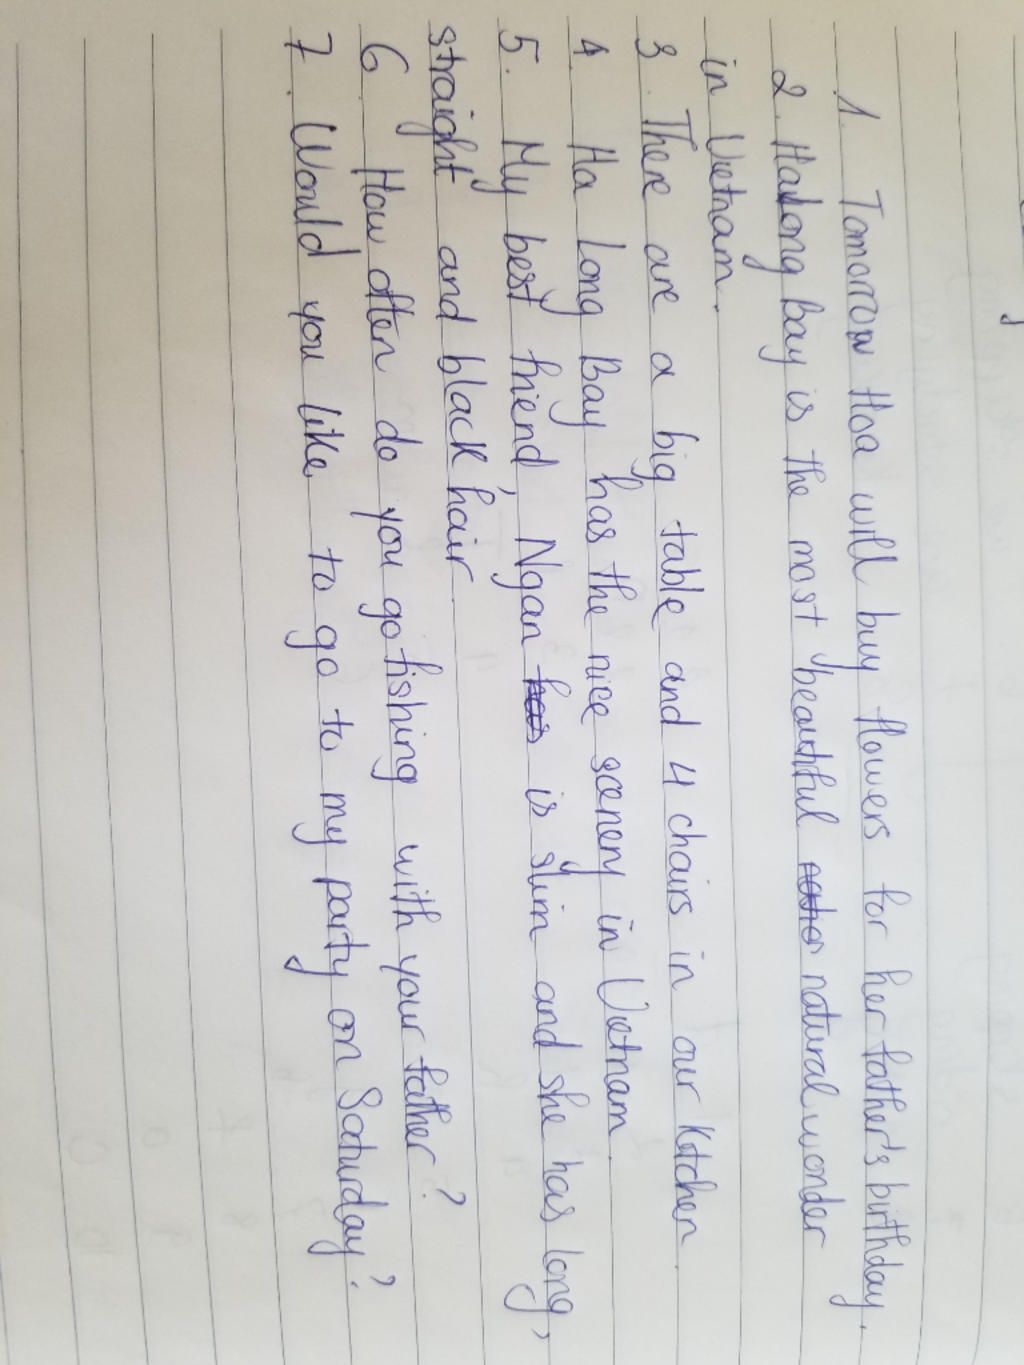 1. Tomorrow Hoa will buy flowers for her father's birthday.
2. Halong Bay is the most beautiful natural wonder
in Vietnam.
3. There are a big table and 4 chairs in our kitchen.
4. Ha Long Bay has the nice scenery in Vietnam.
5. My best friend, Ngan has is slim and she has long,
straight and black hair.
6. How often do you go fishing with your father?
7. Would you like to go to my party on Saturday?